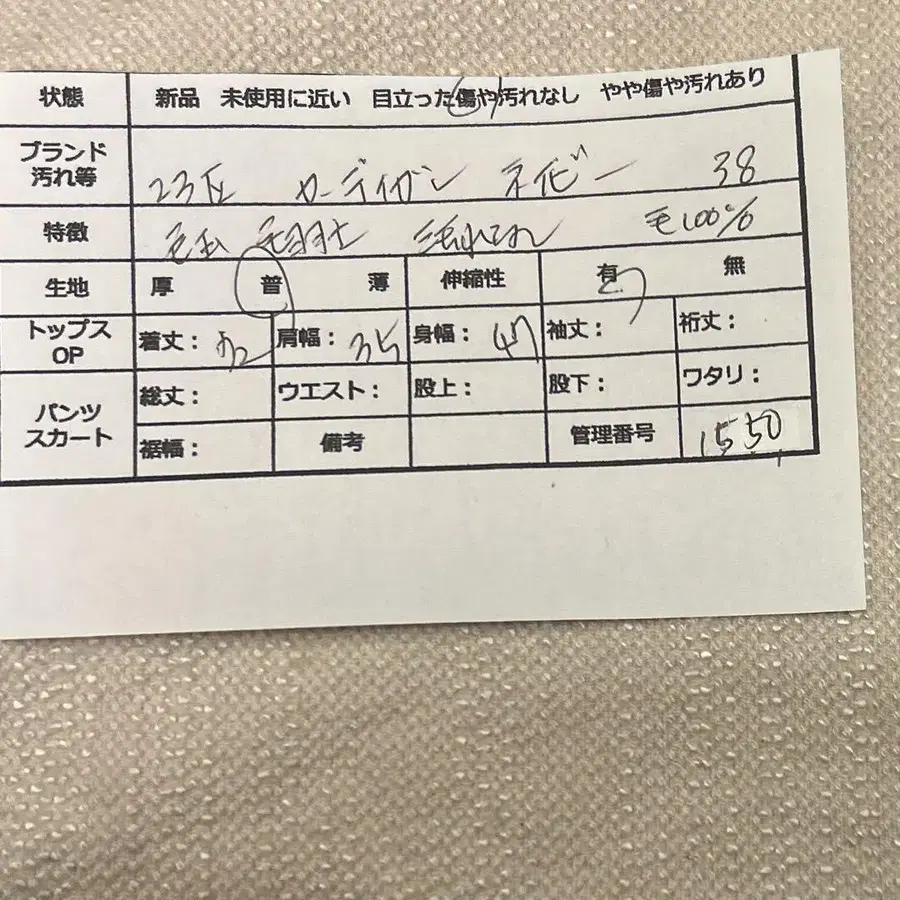 状態 新品 未使用に近い 目立った傷や汚れなし やや傷や汚れあり
ブランド
汚れ等 23区 カーディガン ネイビー 38
特徴 毛玉 毛羽立 毛100%
生地 厚 普 薄 伸縮性 有 無
トップス
OP 着丈： 肩幅：35 身幅：47 袖丈： 裄丈：
パンツ
スカート 総丈： ウエスト： 股上： 股下： ワタリ：
裾幅： 備考 管理番号 1550